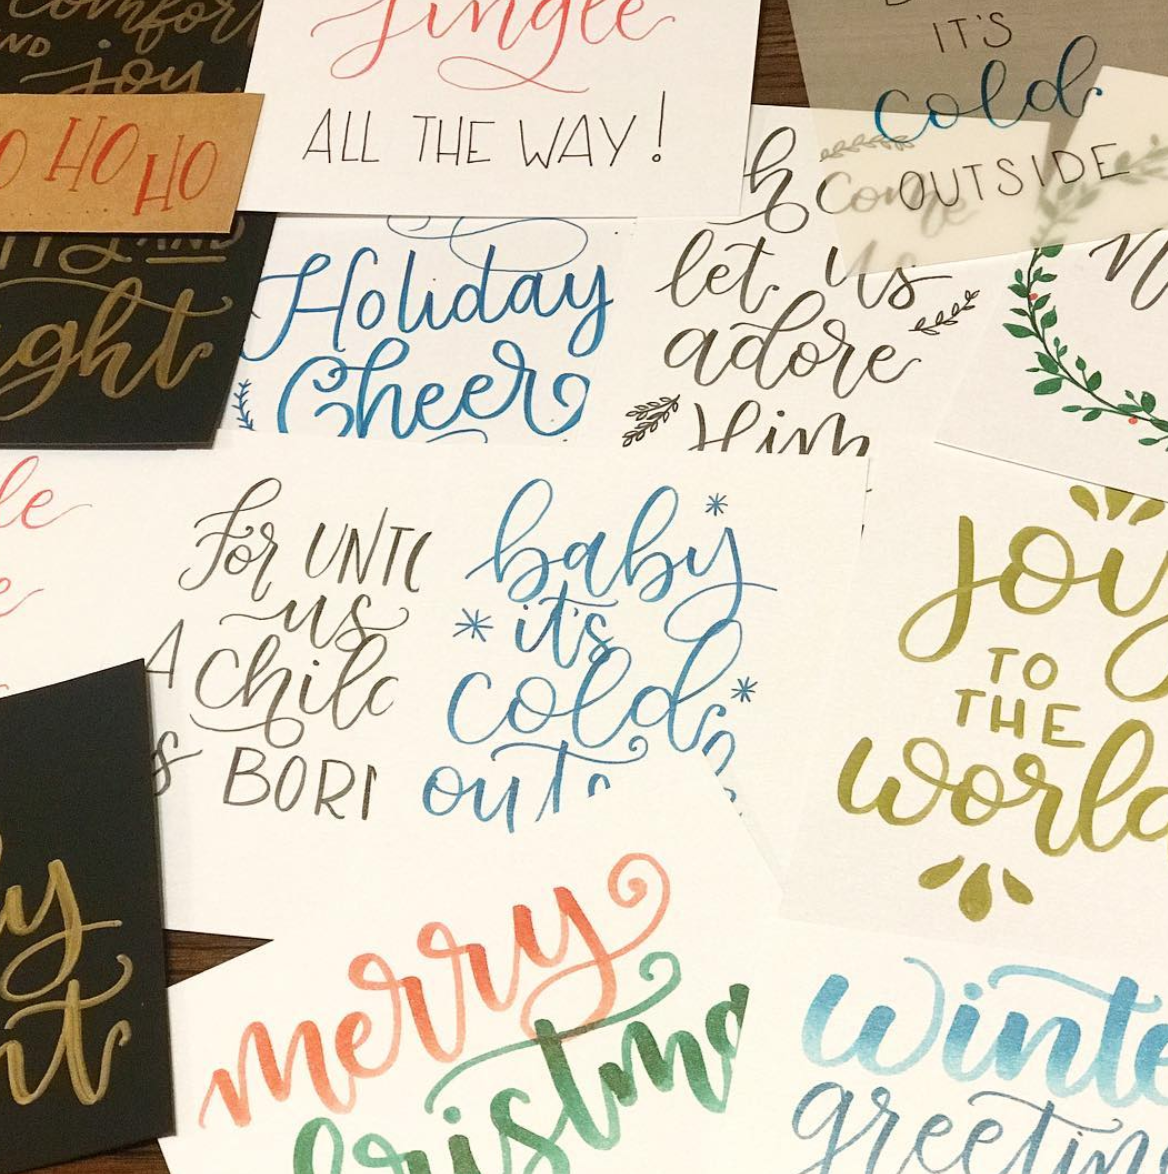 comfort
AND
joy
HO HO
AND
Jingle
ALL THE WAY!
IT'S
cold
OUTSIDE
Come
let us
adore
Him
Holiday
Cheer
for UNTO
us
A child
BORN
baby
it's
cold
outs
joy
TO
THE
world
merry
christmas
winter
greetin